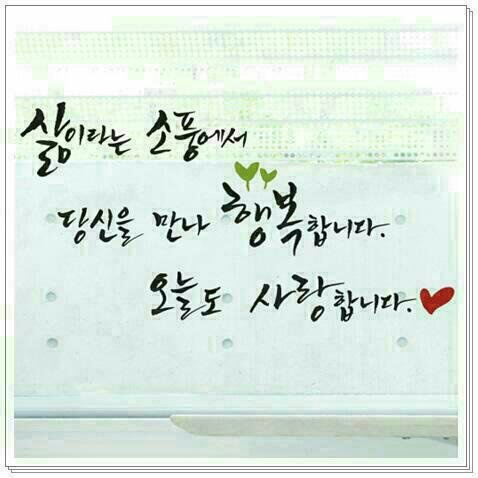 삶이라는 소풍에서
당신을 만나 행복합니다.
오늘도 사랑합니다.